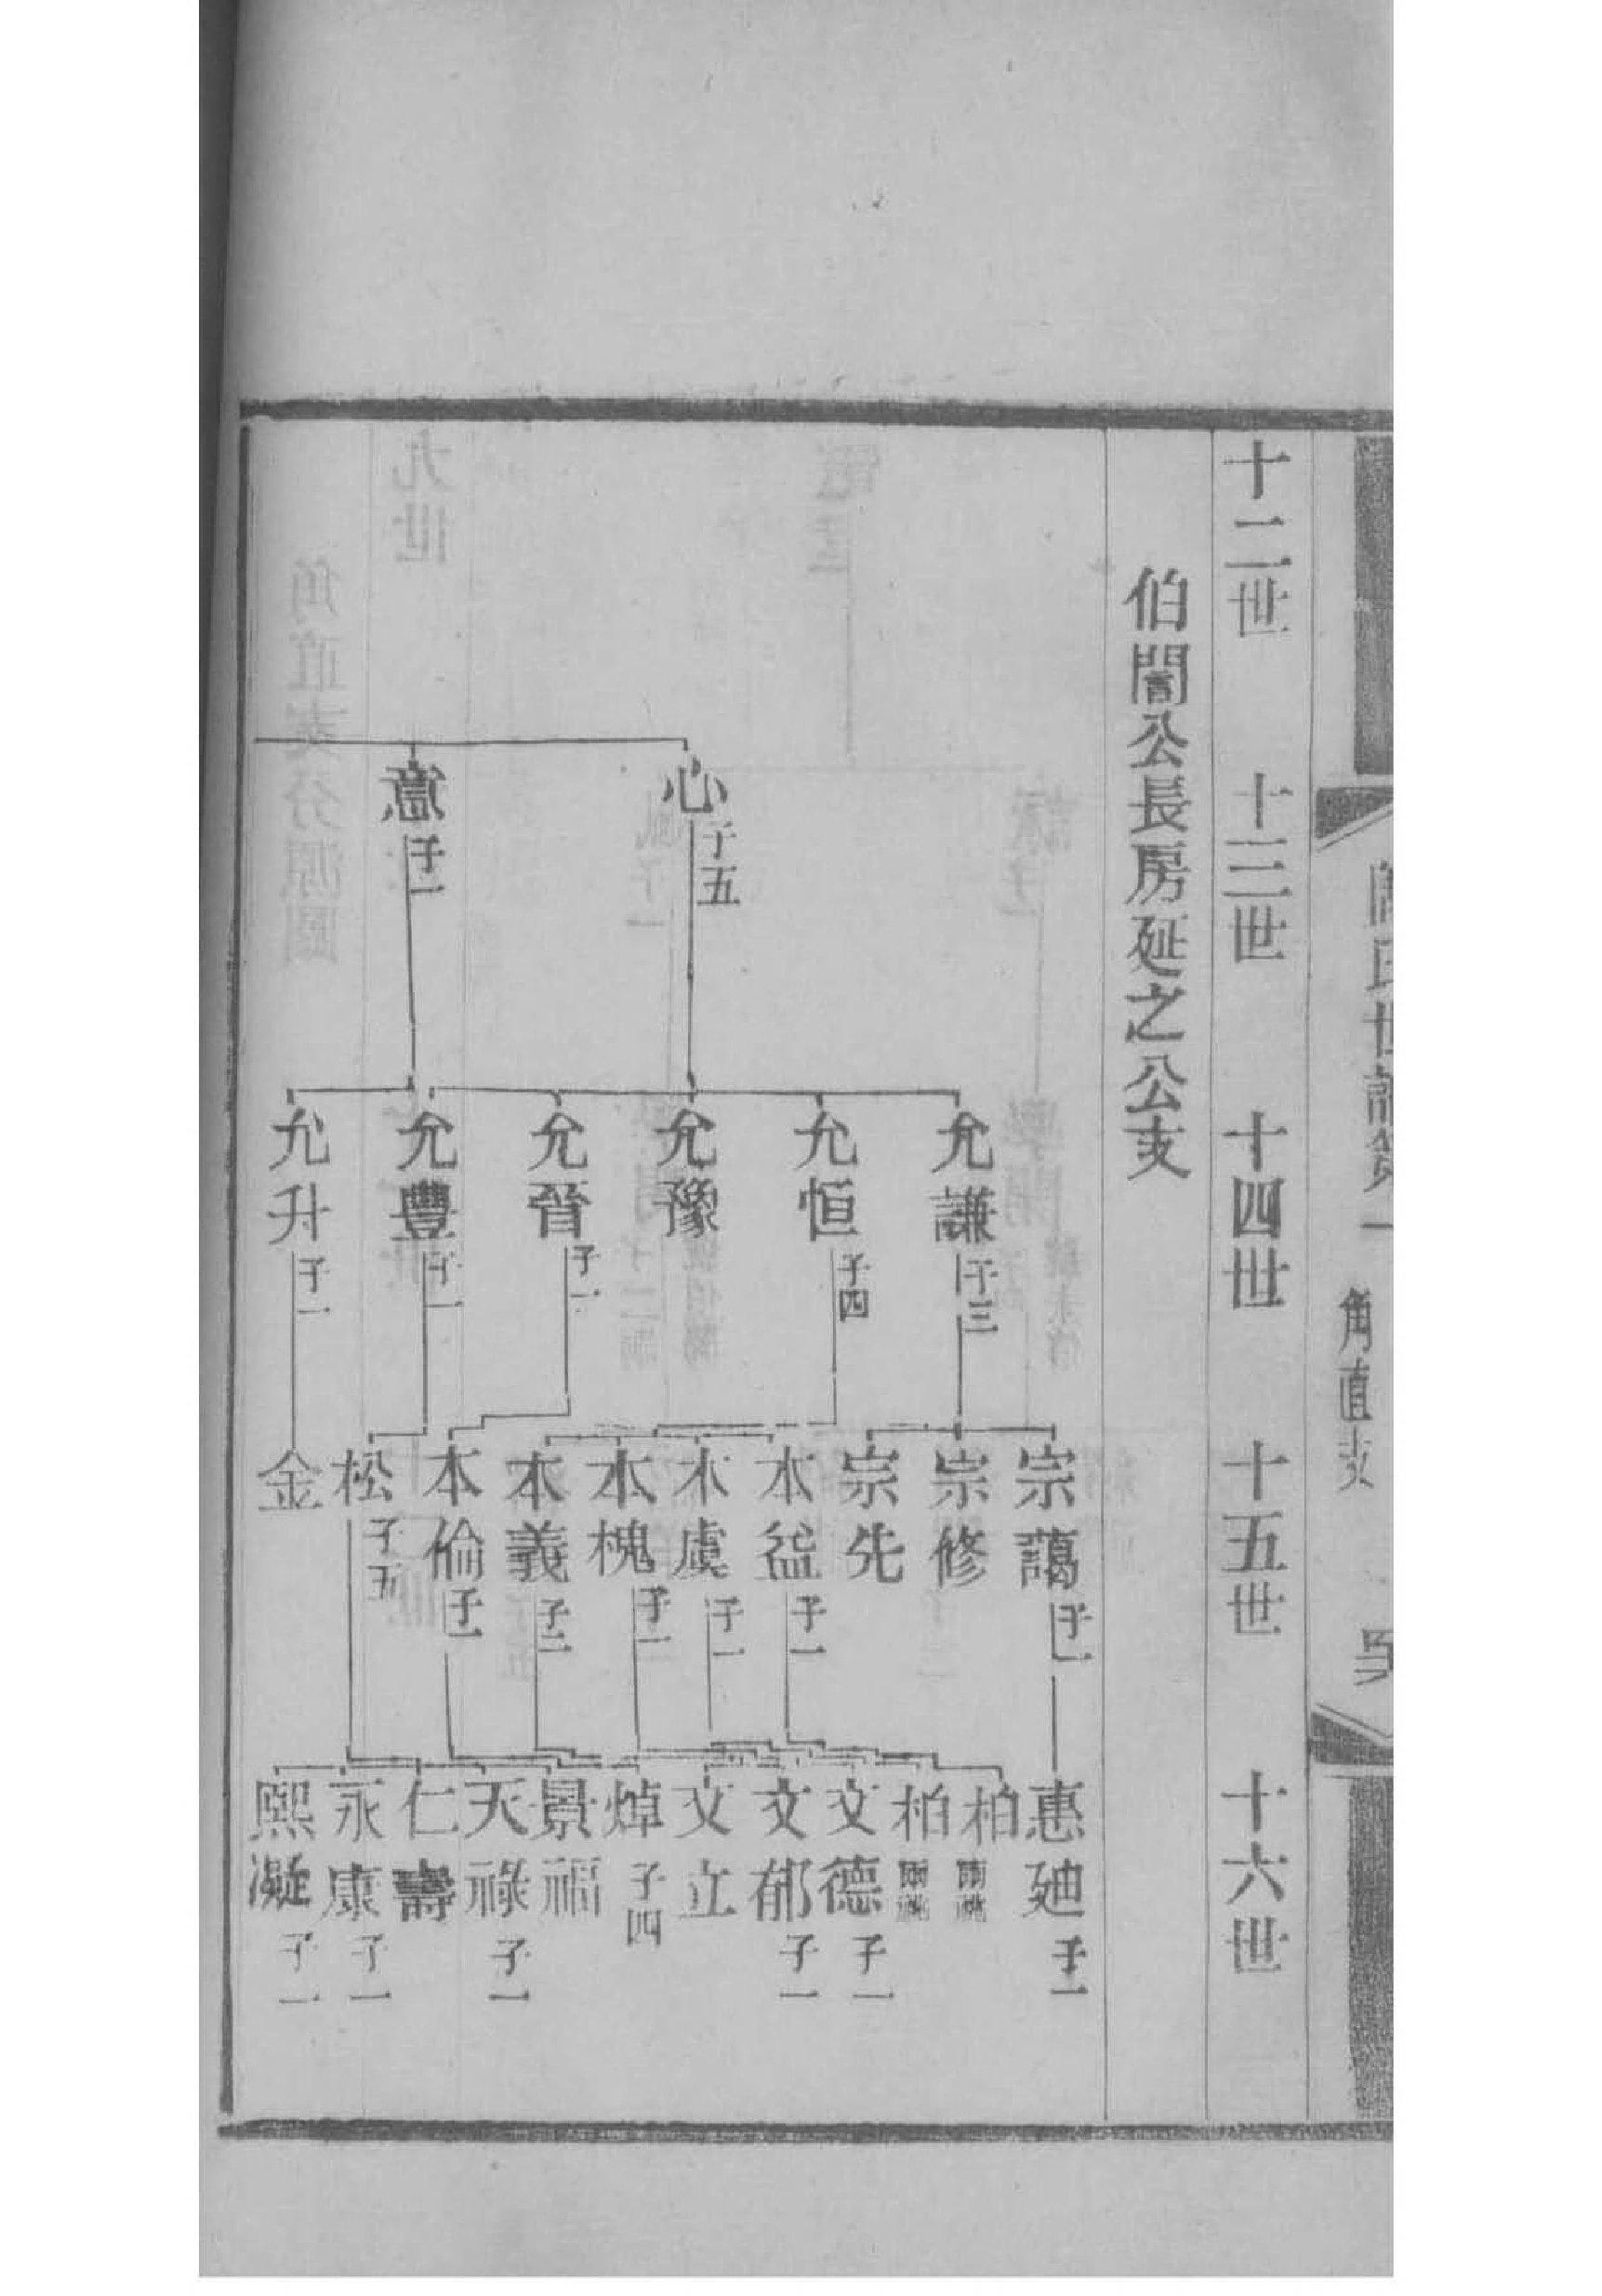 氏世譜
一
角直支
十二世
十三世
十四世
十五世
十六世
伯誾公長房延之公支
心 子五
意 子二
允謙 子三
允恒 子四
允豫
允晉 子一
允豐 子一
允升 子一
宗藹 子一
宗修
宗先
本益 子一
本虞 子一
本槐 子二
本義 子二
本倫 子二
松 子五
金
惠廸 子二
柏
柏
文德 子一
文郁 子一
文立
焯 子四
景福
天祿 子一
仁壽
永康 子一
熙凝 子一